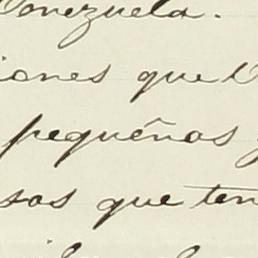 Venezuela.
iones que
pequeños
sos que ten